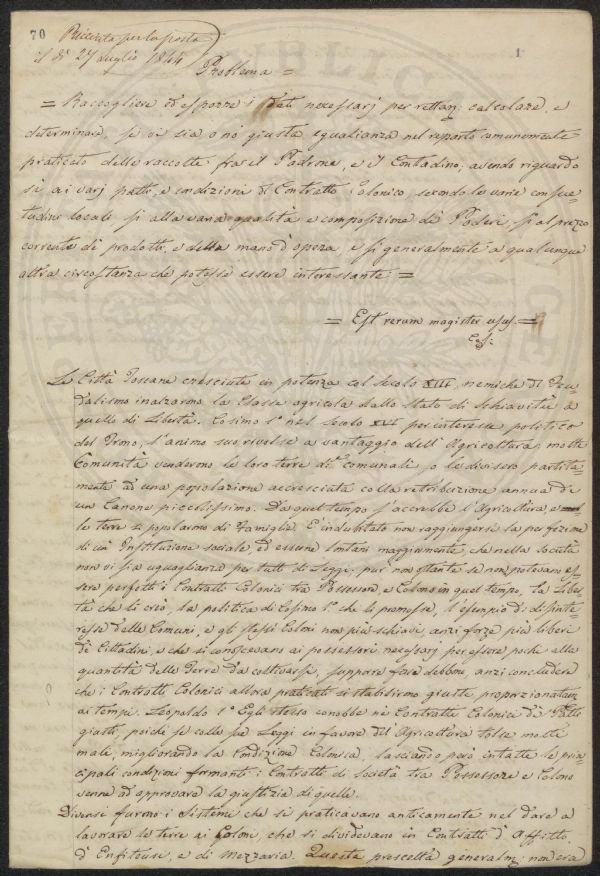 70
Ricevuta per la posta
il dì 27 Luglio 1844
1
Problema =
= Raccogliere ed esporre i Dati necessarj per rettam: calcolare, e
determinare, se vi sia o nò giusta eguaglianza nel reparto comunemente
praticato delle raccolte fra il Padrone, e il Contadino; avendo riguardo
sì ai varj patti, e condizioni del Contratto Colonico, secondo le varie consue-
tudini locali, sì alla varia qualità e composizione dei Poderi, sì al prezzo
corrente dei prodotti, e della mano d'opera, e sì generalmente a qualunque
altra circostanza che potesse essere interessante =
= Est rerum magister usus. =
Le Città Toscane cresciute in potenza col Secolo XIII, nemiche del Feu-
dalismo inalzarono la Classe agricola dallo stato di Schiavitù a
quello di Libertà. Cosimo I° nel Secolo XVI per interesse politico
del Trono, l'animo suo rivolse a vantaggio dell'Agricoltura; molte
Comunità venderono le loro terre dì comunali, o le divisero partita-
mente ad una popolazione accresciuta colla retribuzione annua di
un Canone piccolissimo. Da quel tempo s'accrebbe l'Agricoltura, e
le terre si popolarono di Famiglie. È indubitato non raggiungersi la perfezione
di un' Instituzione sociale, ed esserne lontani maggiormente, che nella Società
non vi sia uguaglianza per tutti di Leggi; pur non ostante se non potevano es-
sere perfetti i Contratti Colonici tra Possessore, e Colono in quel tempo, la Liber-
tà che li creò, la politica di Cosimo I° che li promosse, l'esempio di disinte-
resse delle Comuni, e gli stessi Coloni non più schiavi, anzi forze più liberi
dei Cittadini, e che si conoscevano ai possessori necessarj per essere pochi alla
quantità delle Terre da coltivarsi, supporre debbono, anzi concludere
che i Contratti Colonici allora praticati si stabilirono giusti, proporzionatam:
ai tempi. Leopoldo I° Egli stesso conobbe nei Contratti Colonici dei Patti
giusti, poichè se colle sue Leggi in favore dell'Agricoltura tolse molti
mali, migliorando la Condizione Colonica, lasciando però intatte le prin-
cipali condizioni formanti i Contratti di Società tra Possessore e Colono
venne ad approvare la giustizia di quelle.
Diversi furono i Sistemi che si praticavano anticamente nel dare a
lavorare le terre ai Coloni, che si dividevano in Contratti d'Affitto,
d'Enfiteusi, e di Mezzaria. Questa prescelta generalm: non era